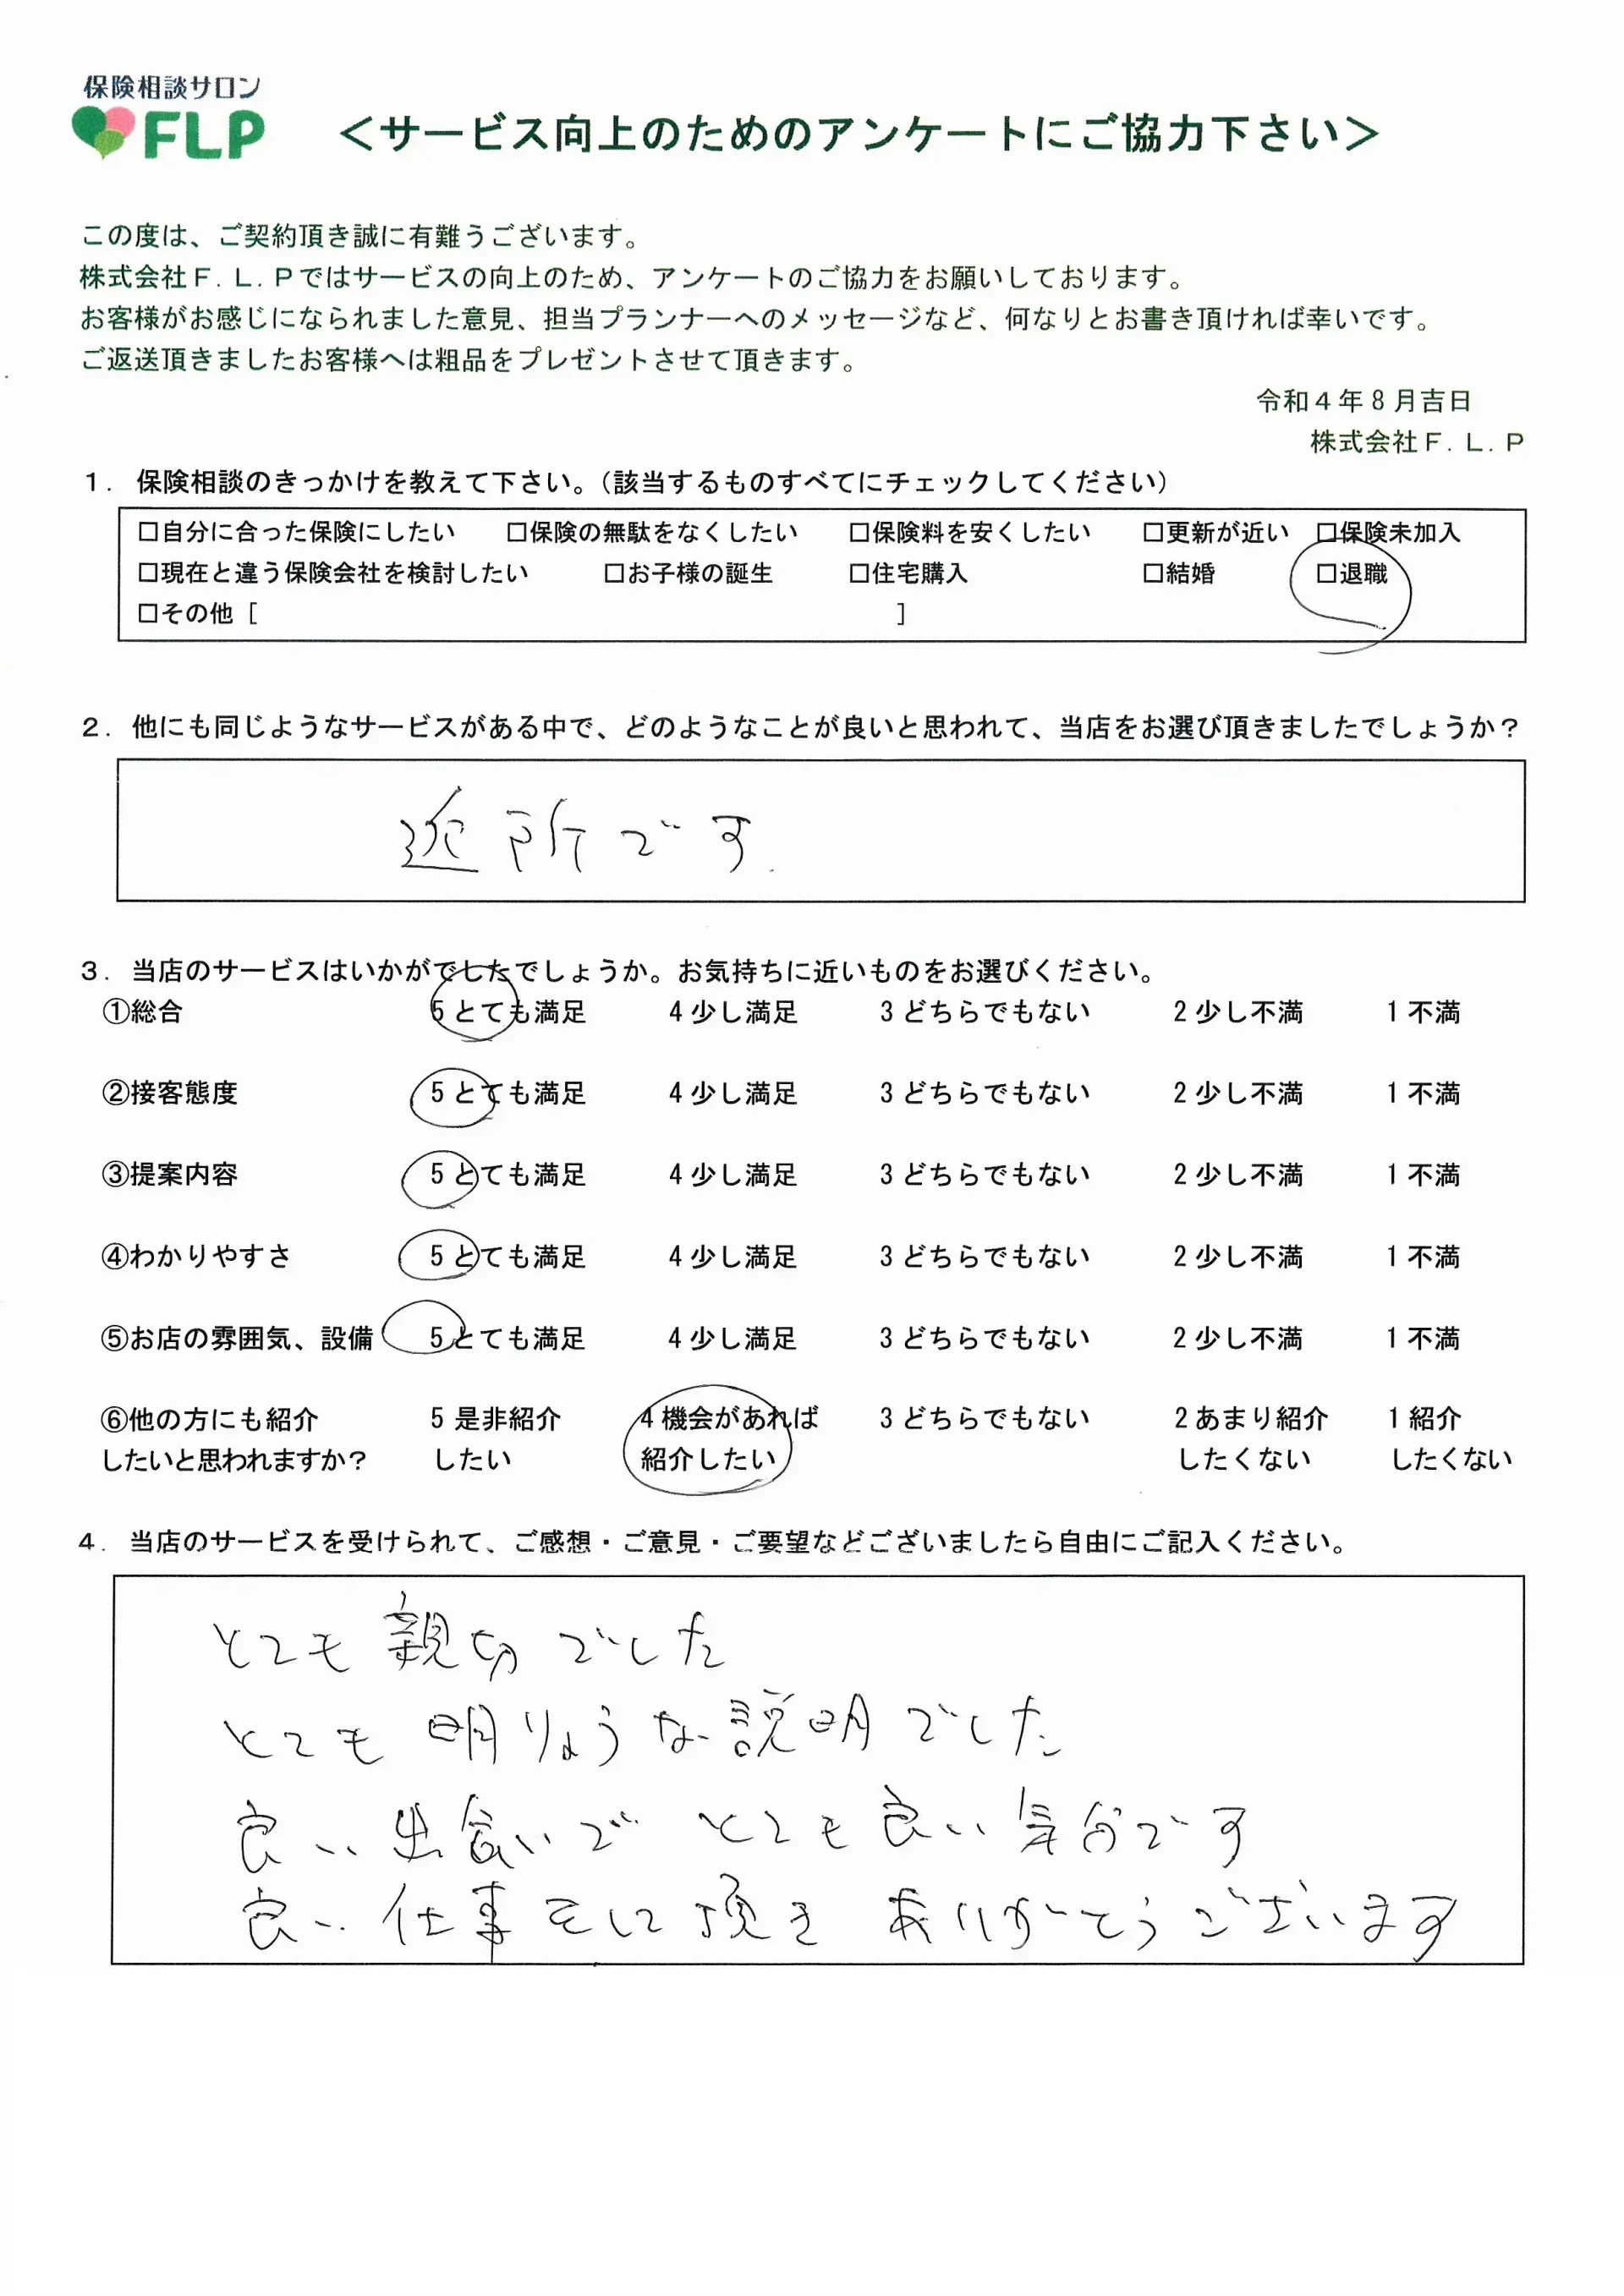 保険相談サロン
FLP
＜サービス向上のためのアンケートにご協力下さい＞
この度は、ご契約頂き誠に有難うございます。
株式会社Ｆ.Ｌ.Ｐではサービスの向上のため、アンケートのご協力をお願いしております。
お客様がお感じになられました意見、担当プランナーへのメッセージなど、何なりとお書き頂ければ幸いです。
ご返送頂きましたお客様へは粗品をプレゼントさせて頂きます。
令和４年８月吉日
株式会社Ｆ.Ｌ.Ｐ
１. 保険相談のきっかけを教えて下さい。（該当するものすべてにチェックしてください）
□自分に合った保険にしたい □保険の無駄をなくしたい □保険料を安くしたい □更新が近い □保険未加入
□現在と違う保険会社を検討したい □お子様の誕生 □住宅購入 □結婚 □退職
□その他 [ ]
２. 他にも同じようなサービスがある中で、どのようなことが良いと思われて、当店をお選び頂きましたでしょうか？
近所です.
３. 当店のサービスはいかがでしたでしょうか。お気持ちに近いものをお選びください。
①総合 5 とても満足 4 少し満足 3 どちらでもない 2 少し不満 1 不満
②接客態度 5 とても満足 4 少し満足 3 どちらでもない 2 少し不満 1 不満
③提案内容 5 とても満足 4 少し満足 3 どちらでもない 2 少し不満 1 不満
④わかりやすさ 5 とても満足 4 少し満足 3 どちらでもない 2 少し不満 1 不満
⑤お店の雰囲気、設備 5 とても満足 4 少し満足 3 どちらでもない 2 少し不満 1 不満
⑥他の方にも紹介 5 是非紹介 4 機会があれば 3 どちらでもない 2 あまり紹介 1 紹介
したいと思われますか？ したい 紹介したい したくない したくない
４. 当店のサービスを受けられて、ご感想・ご意見・ご要望などございましたら自由にご記入ください。
とても親切でした
とても明りょうな説明でした
良い出会いで とても良い気分です
良い仕事をして頂き ありがとうございます